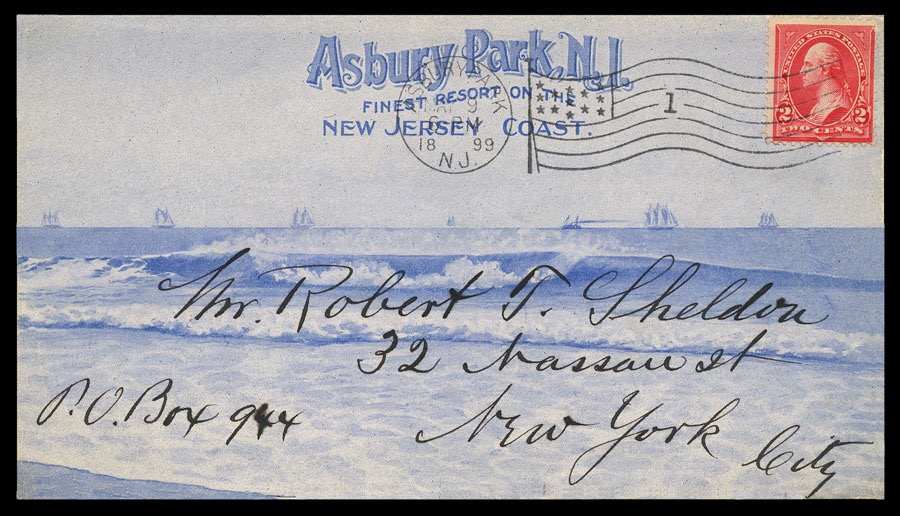 Asbury Park, N.J.
FINEST RESORT ON THE
NEW JERSEY COAST.
ASBURY PARK
9
6 PM
18 99
N.J.
1
UNITED STATES POSTAGE
2 2
TWO CENTS
Mr. Robert T. Sheldon
32 Nassau st
P.O. Box 944
New York
City